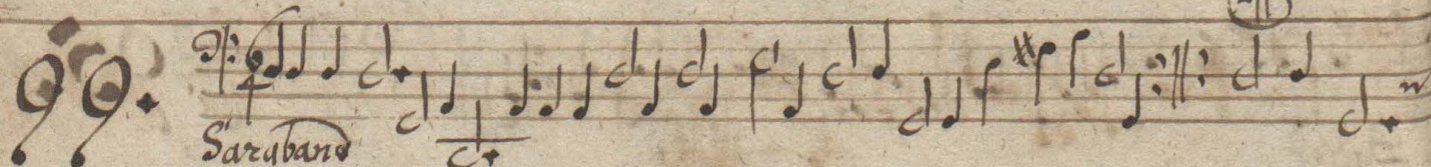 99.
Saraband